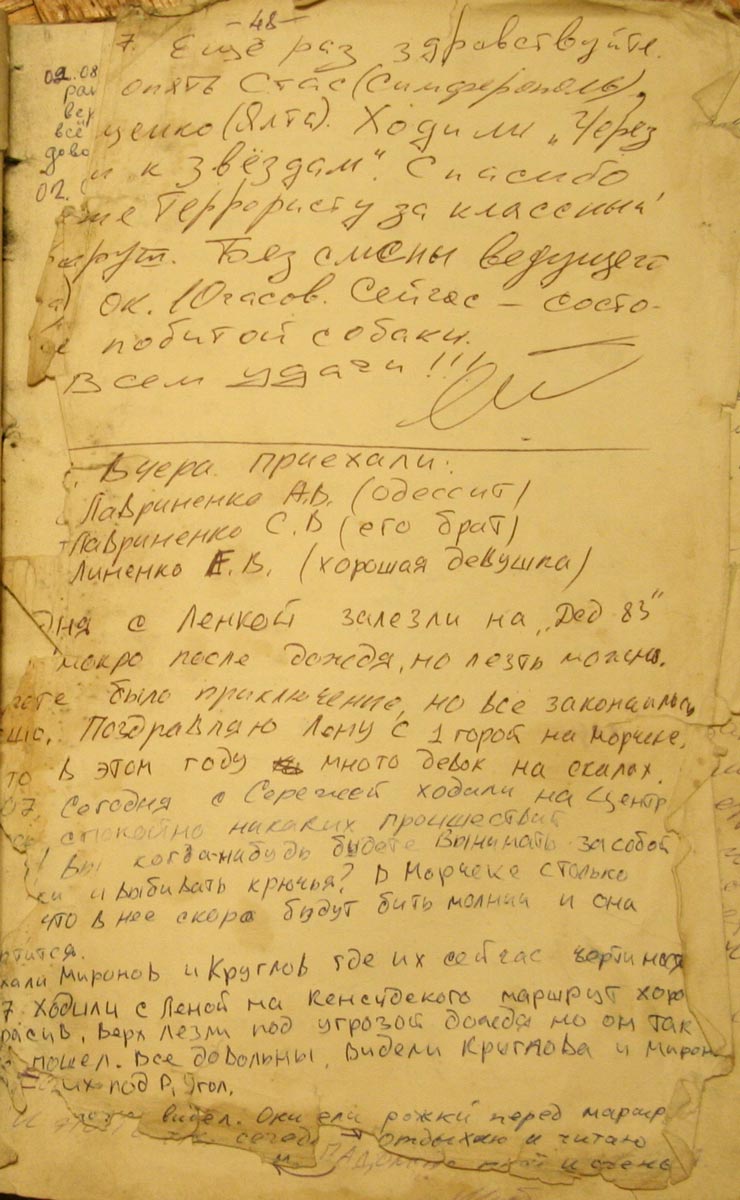 -48-
7. Ещё раз здравствуйте.
02.08 опять Стас (Симферополь),
ценко (Ялта). Ходили „Через
и к звёздам". Спасибо
02.
же Террористу за классный
Без смены ведущего
ок. 10 часов. Сейчас – состо-
е побитой собаки.
Всем удачи!!!
Вчера приехали:
Лавриненко А.В. (одессит)
Лавриненко С.В (его брат)
Линенко Е.В. (хорошая девушка)
Дня с Ленкой залезли на „Дед 83"
мокро после дождя, но лезть можно.
было приключение, но все закончилось
Поздравляю Лену с 1 горой на Морчеке.
то в этом году много девок на скалах.
07 Сегодня с Сережей ходили на Центр
спокойно никаких проишествий
! Вы когда-нибудь будете вынимать за собой
ки и выбивать крючья? В Морчеке столько
что в нее скоро будут бить молнии и она
тится.
хали Миронов и Круглов где их сейчас черти нося
7 Ходили с Леной на маршрут хоро
расив, верх лезли под угрозой дождя но он так
пошел. Все довольны, видели Круглова и Мирон
их под
видел. Они ели рожки перед маршр
отдыхаю и читаю
и очень